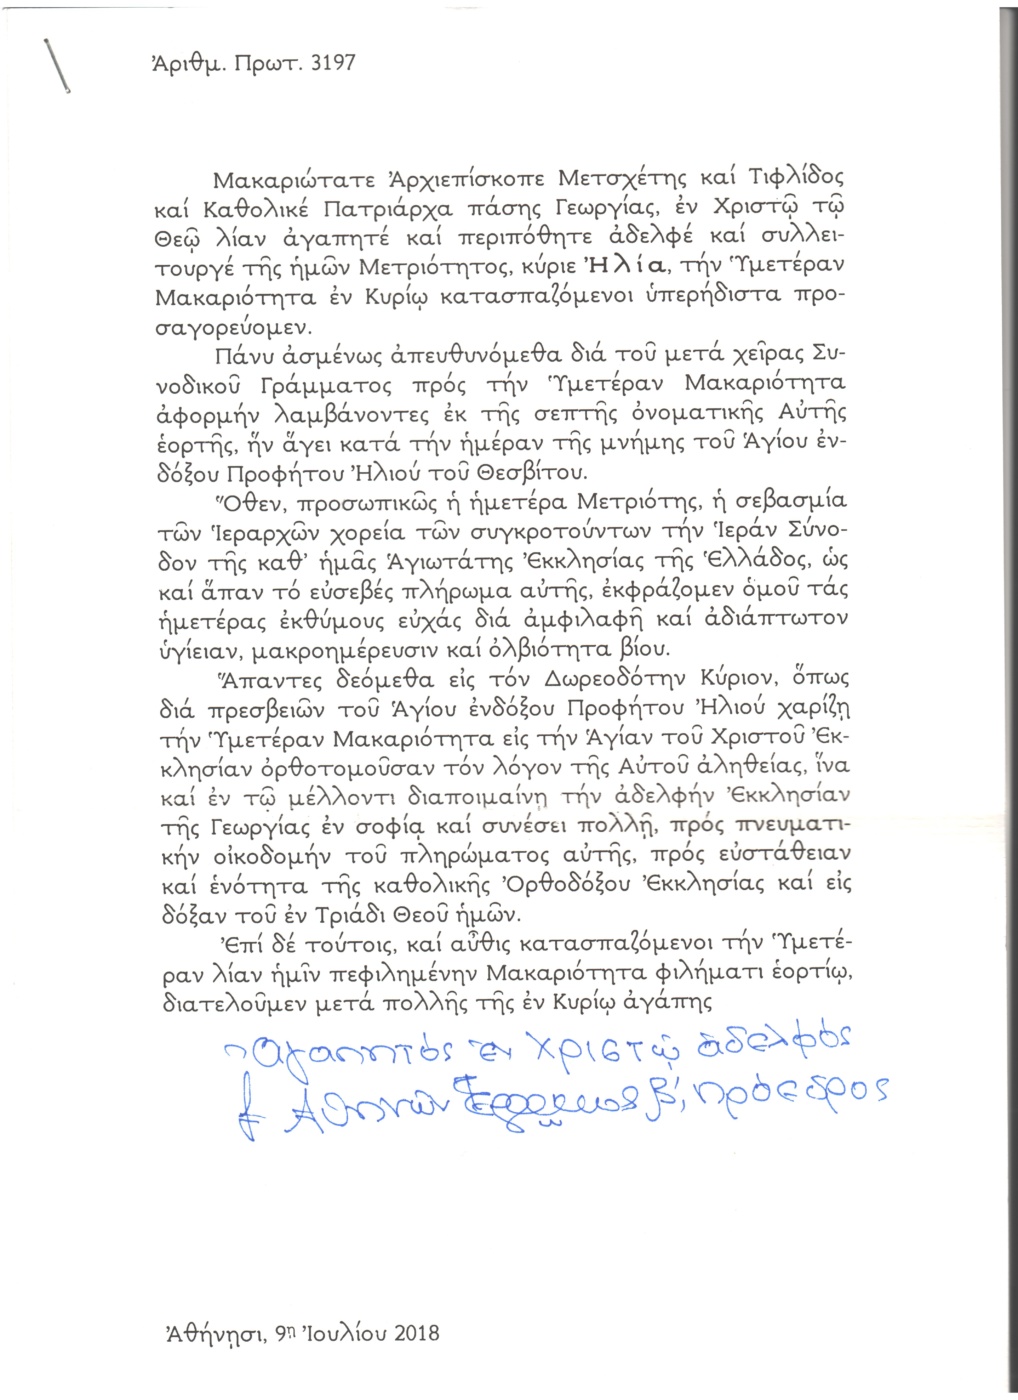 Ἀριθμ. Πρωτ. 3197
Μακαριώτατε Ἀρχιεπίσκοπε Μετσχέτης καί Τιφλίδος
καί Καθολικέ Πατριάρχα πάσης Γεωργίας, ἐν Χριστῷ τῷ
Θεῷ λίαν ἀγαπητέ καί περιπόθητε ἀδελφέ καί συλλει-
τουργέ τῆς ἡμῶν Μετριότητος, κύριε Ἠλία, τήν Ὑμετέραν
Μακαριότητα ἐν Κυρίῳ κατασπαζόμενοι ὑπερήδιστα προ-
σαγορεύομεν.
Πάνυ ἀσμένως ἀπευθυνόμεθα διά τοῦ μετά χεῖρας Συ-
νοδικοῦ Γράμματος πρός τήν Ὑμετέραν Μακαριότητα
ἀφορμήν λαμβάνοντες ἐκ τῆς σεπτῆς ὀνοματικῆς Αὐτῆς
ἑορτῆς, ἥν ἄγει κατά τήν ἡμέραν τῆς μνήμης τοῦ Ἁγίου ἐν-
δόξου Προφήτου Ἠλιού τοῦ Θεσβίτου.
Ὅθεν, προσωπικῶς ἡ ἡμετέρα Μετριότης, ἡ σεβασμία
τῶν Ἱεραρχῶν χορεία τῶν συγκροτούντων τήν Ἱεράν Σύνο-
δον τῆς καθ’ ἡμᾶς Ἁγιωτάτης Ἐκκλησίας τῆς Ἑλλάδος, ὡς
καί ἅπαν τό εὐσεβές πλήρωμα αὐτῆς, ἐκφράζομεν ὁμοῦ τάς
ἡμετέρας ἐκθύμους εὐχάς διά ἀμφιλαφῆ καί ἀδιάπτωτον
ὑγίειαν, μακροημέρευσιν καί ὀλβιότητα βίου.
Ἅπαντες δεόμεθα εἰς τόν Δωρεοδότην Κύριον, ὅπως
διά πρεσβειῶν τοῦ Ἁγίου ἐνδόξου Προφήτου Ἠλιού χαρίζῃ
τήν Ὑμετέραν Μακαριότητα εἰς τήν Ἁγίαν τοῦ Χριστοῦ Ἐκ-
κλησίαν ὀρθοτομοῦσαν τόν λόγον τῆς Αὐτοῦ ἀληθείας, ἵνα
καί ἐν τῷ μέλλοντι διαποιμαίνῃ τήν ἀδελφήν Ἐκκλησίαν
τῆς Γεωργίας ἐν σοφίᾳ καί συνέσει πολλῇ, πρός πνευματι-
κήν οἰκοδομήν τοῦ πληρώματος αὐτῆς, πρός εὐστάθειαν
καί ἑνότητα τῆς καθολικῆς Ὀρθοδόξου Ἐκκλησίας καί εἰς
δόξαν τοῦ ἐν Τριάδι Θεοῦ ἡμῶν.
Ἐπί δέ τούτοις, καί αὖθις κατασπαζόμενοι τήν Ὑμετέ-
ραν λίαν ἡμῖν πεφιλημένην Μακαριότητα φιλήματι ἑορτίῳ,
διατελοῦμεν μετά πολλῆς τῆς ἐν Κυρίῳ ἀγάπης
Ἀγαπητός ἐν Χριστῷ ἀδελφός
Ἀθηνῶν Ἱερώνυμος Β΄, πρόεδρος
Ἀθήνῃσι, 9ῃ Ἰουλίου 2018